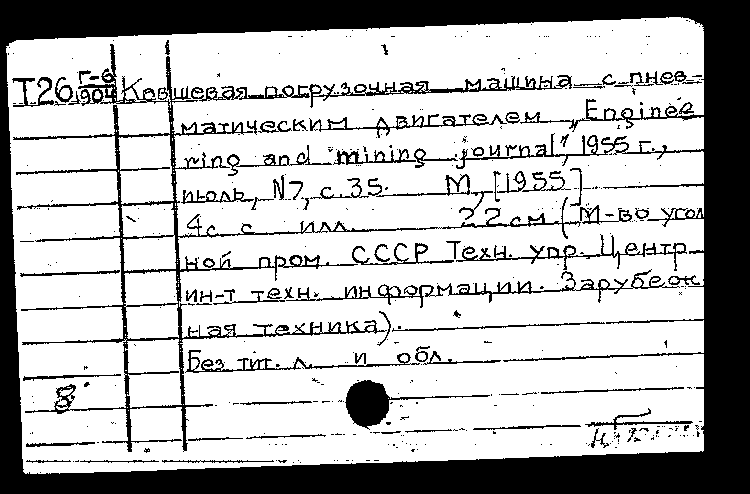 Т26 Г-6/904 Ковшевая погрузочная машина с пнев-
матическим двигателем „Enginee
ring and mining journal", 1955 г.,
июль, N7, с.35. М., [1955]
4с с илл. 22 см (М-во угол
ной пром. СССР Техн. упр. Центр
ин-т техн. информации. Зарубеж
ная техника).
Без тит. л. и обл.
8